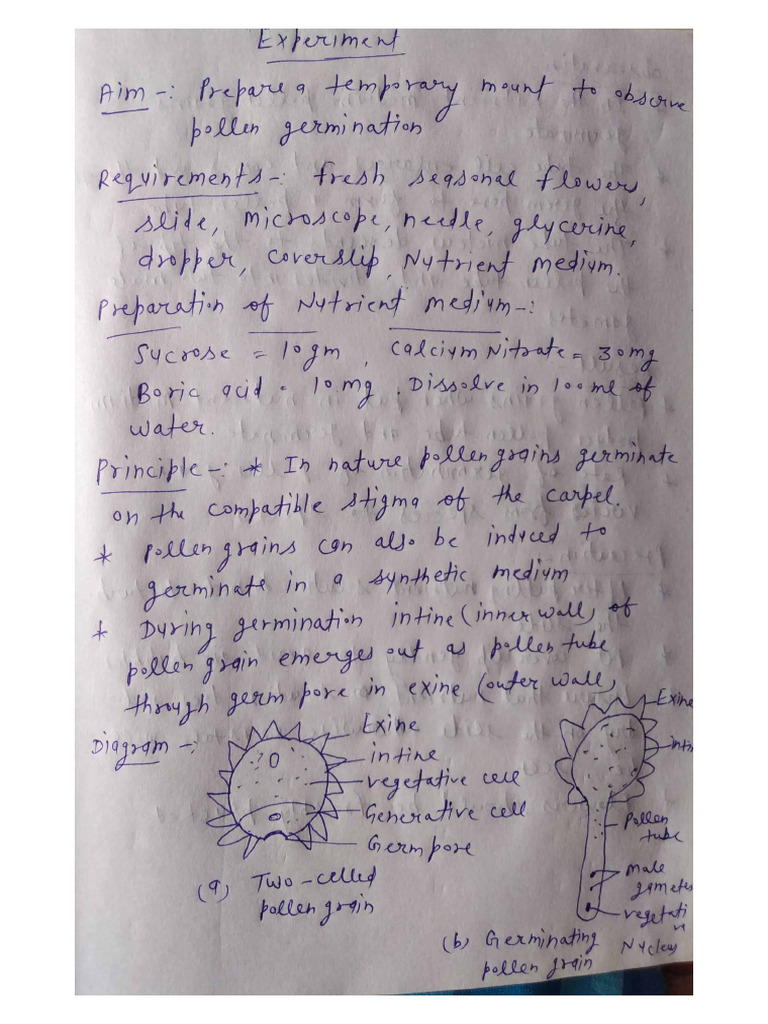 Experiment
Aim -: Prepare a temporary mount to observe
pollen germination
Requirements -: fresh seasonal flowers,
slide, microscope, needle, glycerine,
dropper, coverslip, Nutrient medium.
Preparation of Nutrient medium -:
Sucrose = 10gm, Calcium Nitrate = 30mg
Boric acid = 10mg. Dissolve in 100ml of
water.
Principle -: * In nature pollen grains germinate
on the compatible stigma of the carpel.
* pollen grains can also be induced to
germinate in a synthetic medium
* During germination intine (inner wall) of
pollen grain emerges out as pollen tube
through germ pore in exine (outer wall)
Diagram -:
Exine
intine
vegetative cell
Generative cell
Germ pore
(a) Two-celled
pollen grain
Exine
intin
pollen
tube
male
gamete
vegetati
Nucleus
(b) Germinating
pollen grain